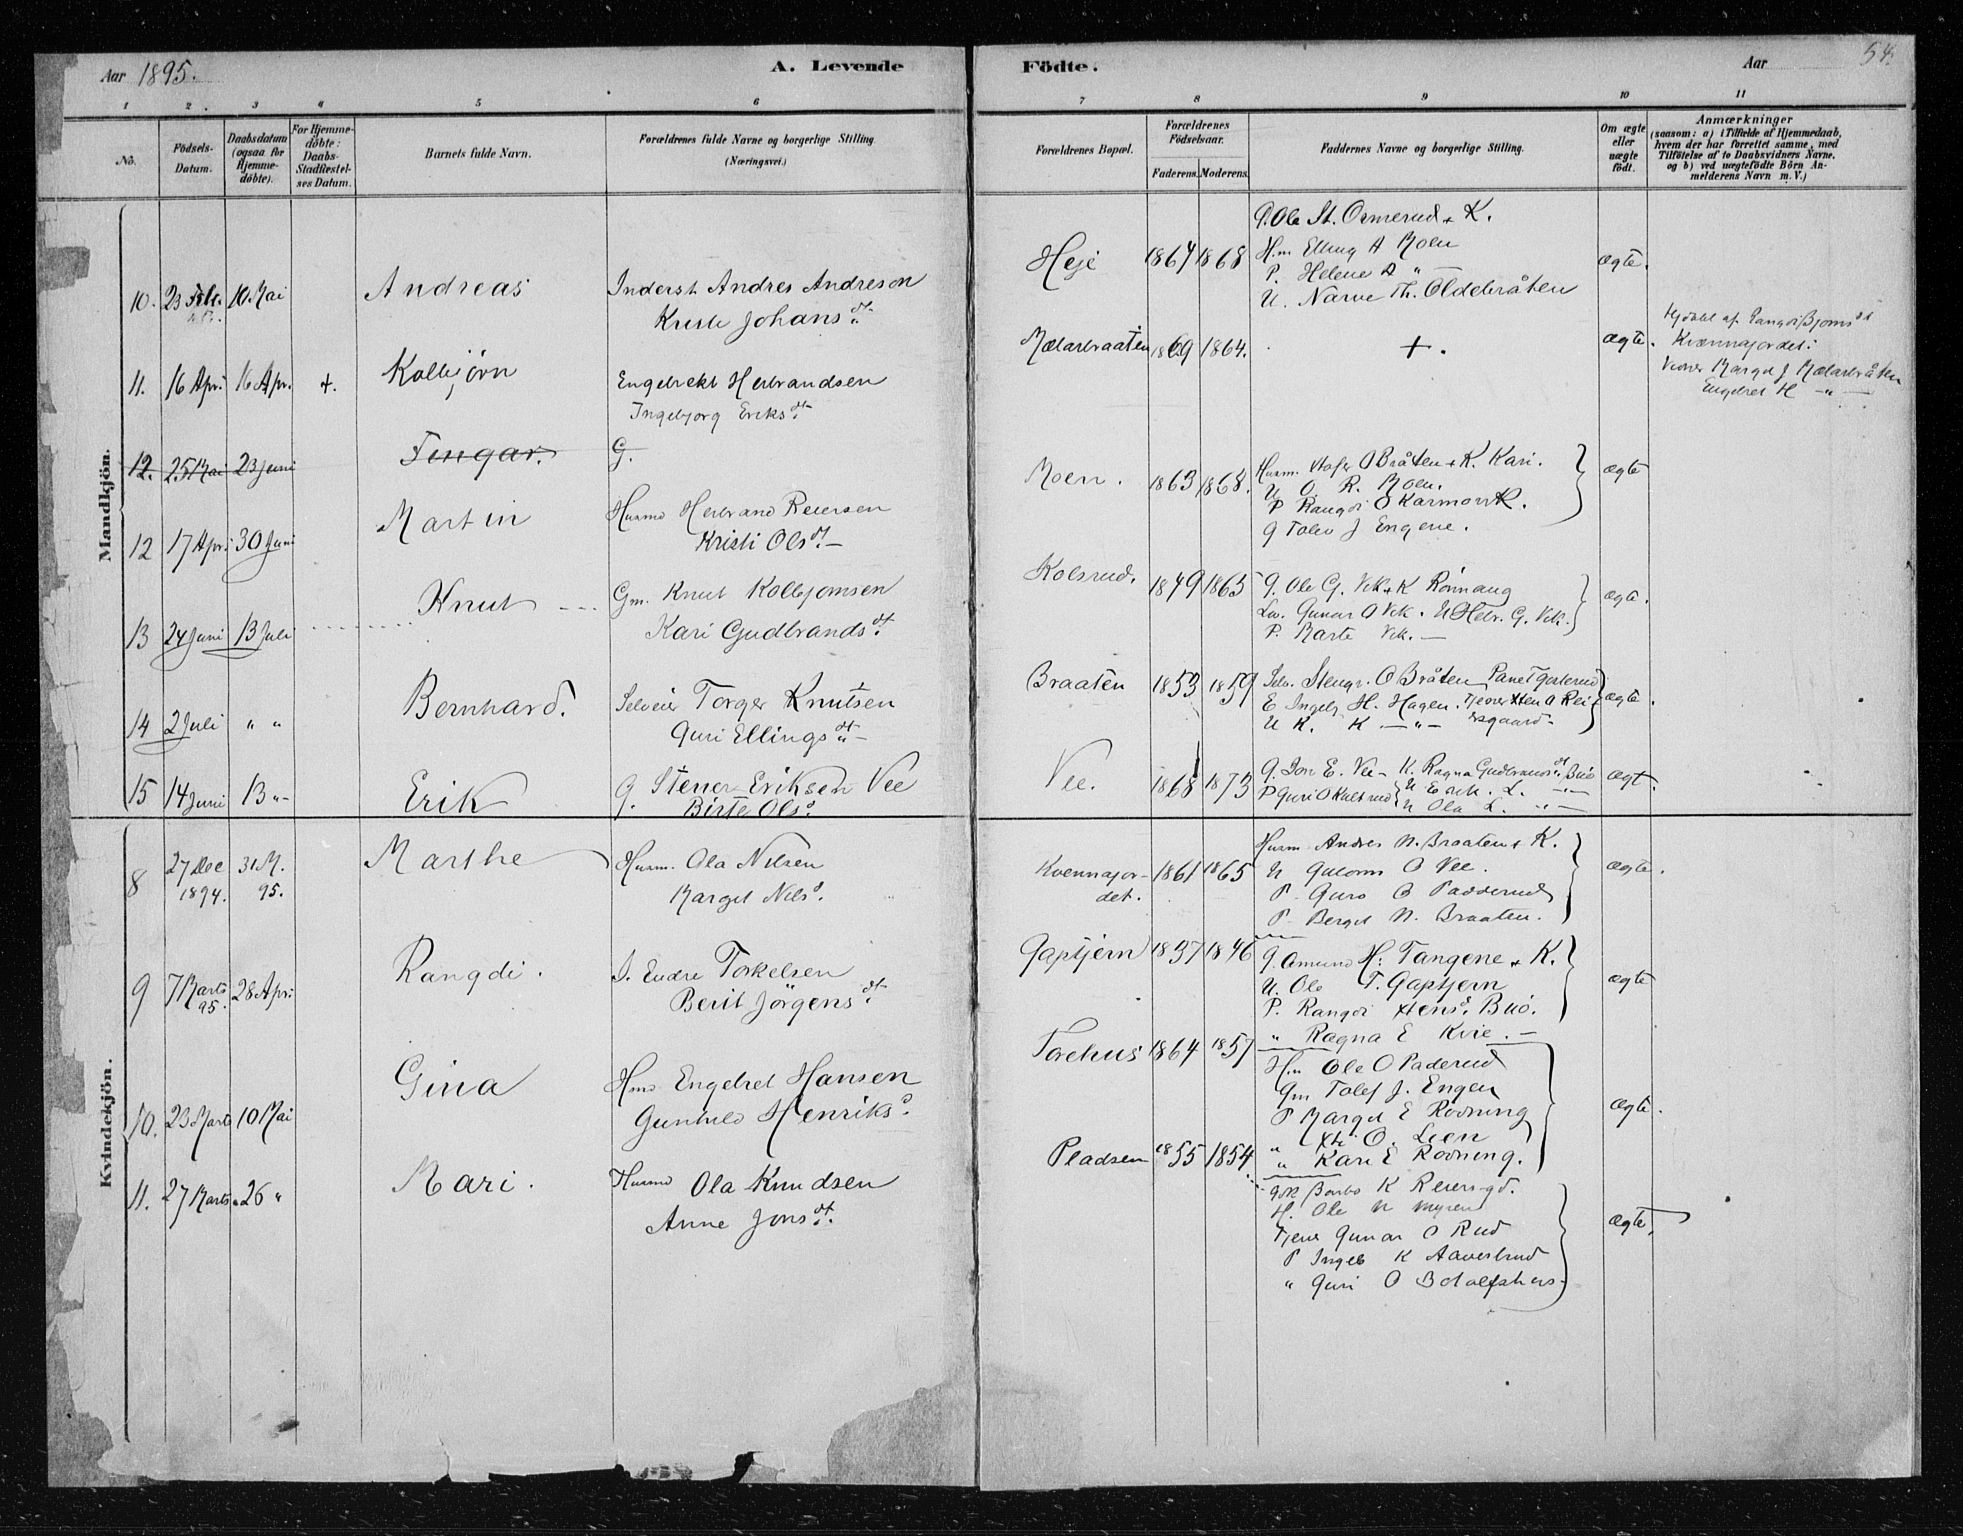 Aar 1895.
A. Levende
Födte.
Aar
54.
1 2. 3 4 5 6 7 8 9 10 11
No.
Födsels-Datum.
Daabsdatum (ogsaa för Hjemme-döbte).
For Hjemme-döbte: Daabs-Stadfæstel-ses Datum.
Barnets fulde Navn.
Forældrenes fulde Navne og borgerlige Stilling. (Næringsvei.)
Forældrenes Bopæl.
Forældrenes Födselsaar.
Faderens. Moderens.
Faddernes Navne og borgerlige Stilling.
Om ægte eller uægte födt.
Anmærkninger
(saasom: a) i Tilfælde af Hjemmedaab, hvem der har forrettet samme, med Tilföielse af to Daabsvidners Navne, og b) ved uægtefödte Börn An-melderens Navn m. V.)
Mandkjön.
10. 23 Feb. 10 Mai Andreas Inderst Andres Andreson
Kristi Johans dt.
Heje 1864 1868
G. Ole St. Ormerud + K.
Hm Elling A Moen
P. Helene A "
U. Narve Th. Oldebråten
ægte.
11. 16 Apr. 16 Apr. +. Kolbjörn Engebrekt Herbrandsen
Ingebjorg Eriks dt.
Mælarbraaten 1869 1864. + . ægte.
Hjdöbt af Rangdi Bjorns dt
Kvænnajordet.
Margit J Mælarbråten
Engebret H — " —
12. 25 Mai 23 Juni Tingar. G.
12 17 Apr. 30 Juni Martin Husmd Herbrand Reiersen
Kristi Ols dt. —
Moen. 1863 1868.
Husm. O Bråten + K. Kari.
U O. R. Moen.
P Rangdi O Karmorik.
G Tolev J Engene.
ægte
13 24 Juni 13 Juli Knut Gm. Knut Kolbjornsen
Kari Gudbrands dt.
Kolsrud. 1849 1863
G. Ole G. Vik + K Rönnaug
Lw. Gunar O Vik. U Helv. G. Vik.
P. Marte Vik. —
ægte.
14 2 Juli " " Bernhard. Selveier Torger Knutsen
Guri Ellings dt. —
Braaten 1853 1859
Selv. Stengr. O Bråten
E Ingeb H. Hagen.
U K. K — " —
ægte.
15 14 Juni 13 " Erik G. Stener Eriksen Vee
Birte Ols d.
Vee. 1868 1873
G. Jon E. Vee — K. Ragna Gudbrands dt. Buo
P Guri O Kulsrud U Erik. L. — " —
U Ola L. — " —
ægt.
Kvindekjön.
8 27 Dec 1894. 31 M. 95. Marthe Husm. Ola Nilsen
Margit Nils d.
Kvennajor-det. 1861 1865
Husm Andres N. Braaten + K.
U Guttorm O Vee.
P Guro O Padderud
P Bergit N. Braaten.
ægte.
9 7 Marts 95. 28 Apr. Rangdi. I. Endre Torkelsen
Berit Jörgens dt.
Gaptjern 1837 1846
G. Amund H. Tangene + K.
U. Ole T. Gaptjern
P. Rangdi Hens d. Buo.
" Ragna E Kvie. —
ægte
10. 23 Marts 10 Mai Gina Hmd Engebret Hansen
Gunhild Henriks d.
Torehus 1864 1857
Hm Ole O Paderud
Gm Tolef J. Engen
P Margit E Rovning
" Kti O. Lien
" Kari E Rovning.
ægte.
11. 27 Marts 26 " Mari. Husmd Ola Knudsen
Anne Jons dt.
Pladsen 1855 1854
Gk Barbo K Reiersgd.
H. Ole N Myren
Tjener Gunar O Rud
P Ingeb K Aaverbrud
" Guri O Botolfshus
ægte.